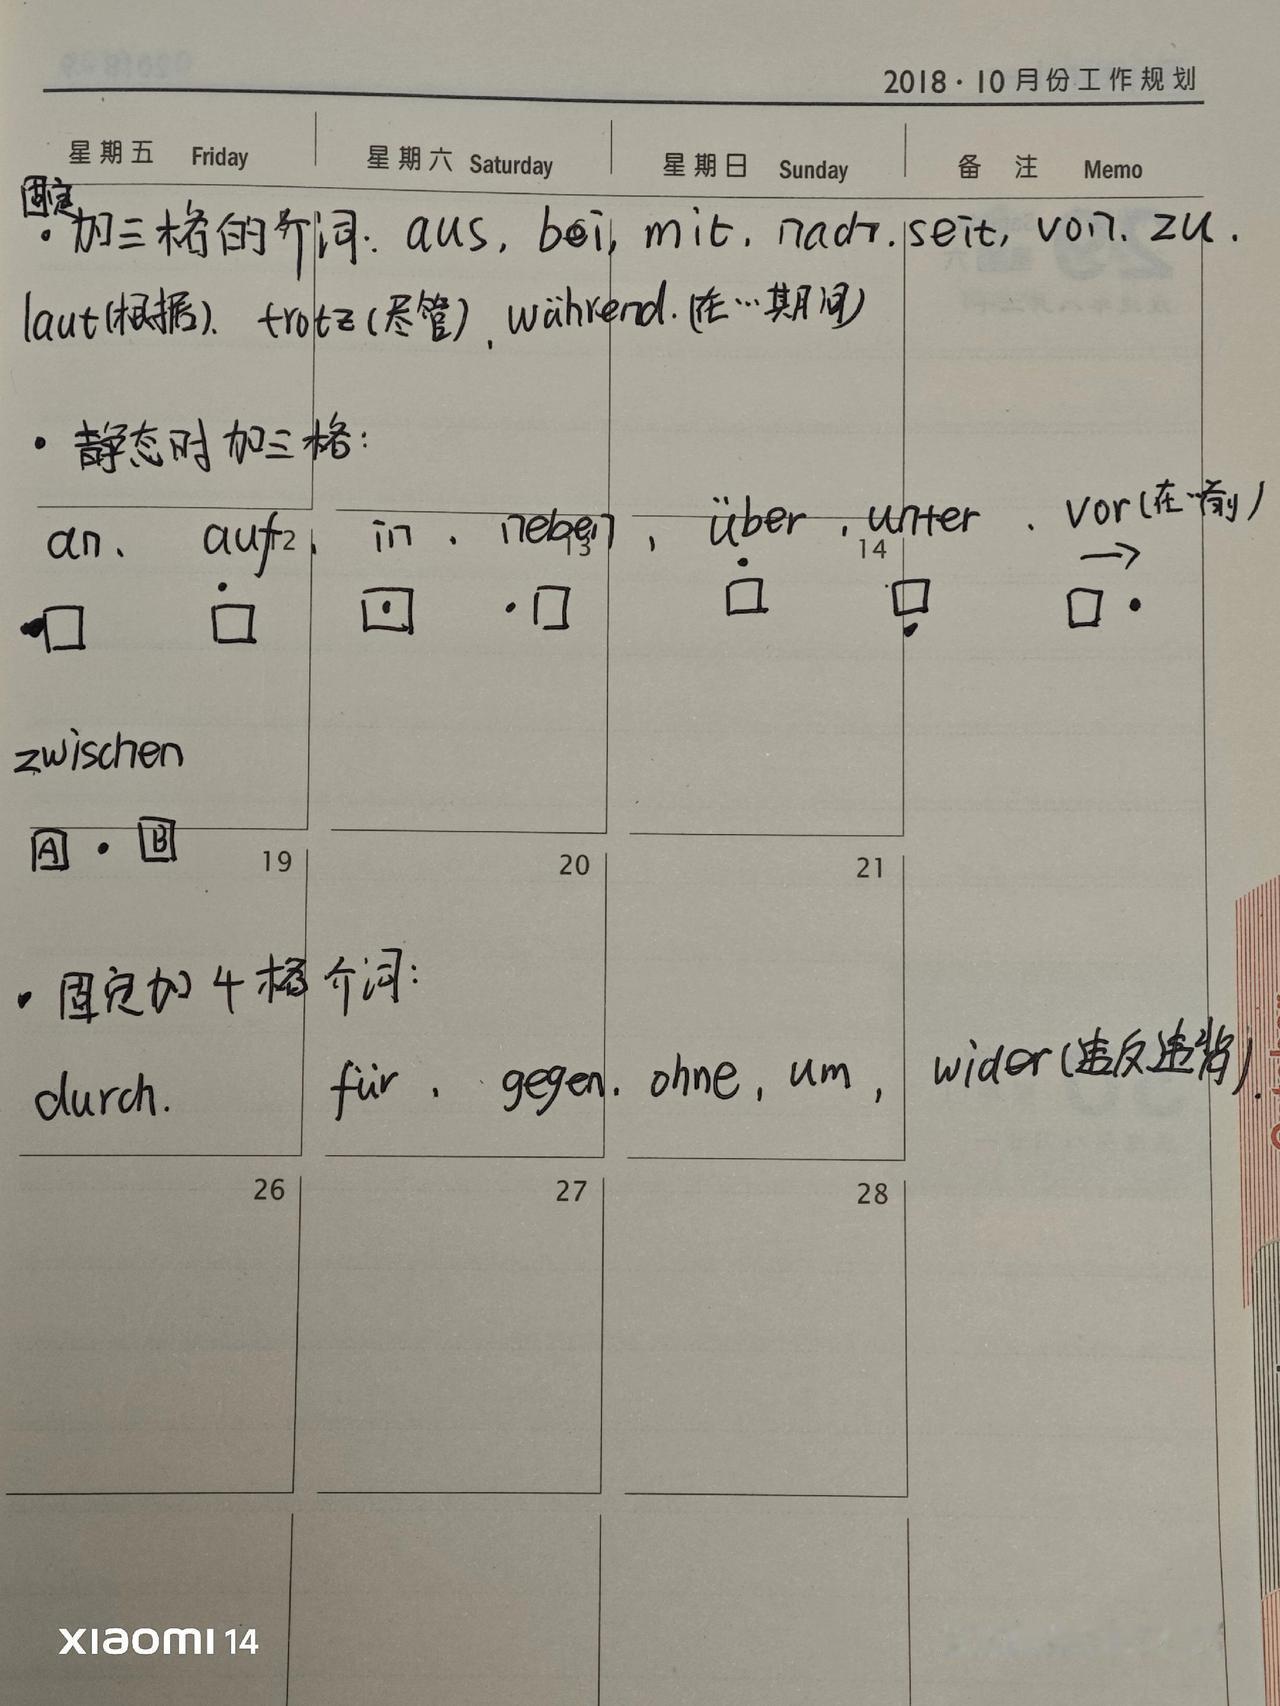 2018·10月份工作规划
星期五 Friday 星期六 Saturday 星期日 Sunday 备 注 Memo
固定
·加三格的介词: aus, bei, mit, nach, seit, von, zu.
laut(根据), trotz(尽管), während.(在…期间)
·静态时加三格:
an、 auf, in, neben, über, unter, vor(在…前)
12 13 14
zwischen
A · B
19 20 21
·固定加4格介词:
durch. für, gegen, ohne, um, wider(违反违背).
26 27 28
xiaomi 14